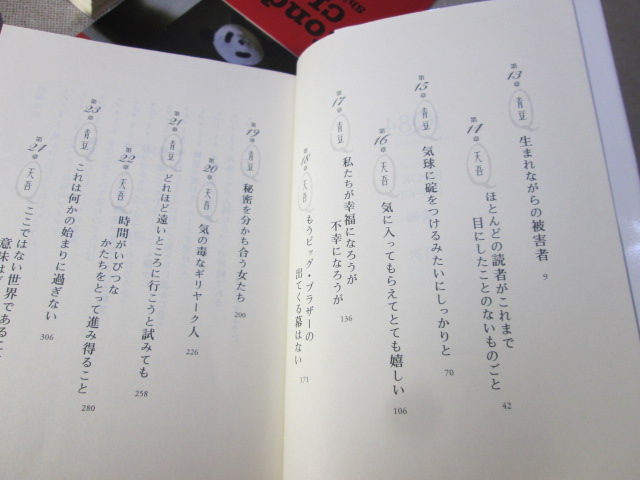 第13章 青豆 生まれながらの被害者 9
第14章 天吾 ほとんどの読者がこれまで
目にしたことのないものごと 42
第15章 青豆 気球に碇をつけるみたいにしっかりと 70
第16章 天吾 気に入ってもらえてとても嬉しい 106
第17章 青豆 私たちが幸福になろうが
不幸になろうが 136
第18章 天吾 もうビッグ・ブラザーの
出てくる幕はない 171
第19章 青豆 秘密を分かち合う女たち 200
第20章 天吾 気の毒なギリヤーク人 226
第21章 青豆 どれほど遠いところに行こうと試みても 258
第22章 天吾 時間がいびつな
かたちをとって進み得ること 280
第23章 青豆 これは何かの始まりに過ぎない 306
第24章 天吾 ここではない世界であること
意味は